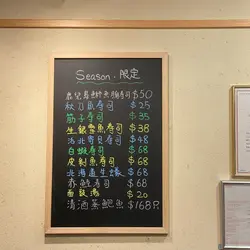 Season.限定
鹿兒島鰤魚腩壽司 $50
秋刀魚壽司 $25
筋子壽司 $35
生銀雪魚壽司 $38
活北寄貝壽司 $48
白蝦壽司 $68
皮剝魚壽司 $68
北海道生蠔 $68
壽司 $68
湯 $20
清酒蒸鮑魚 $168